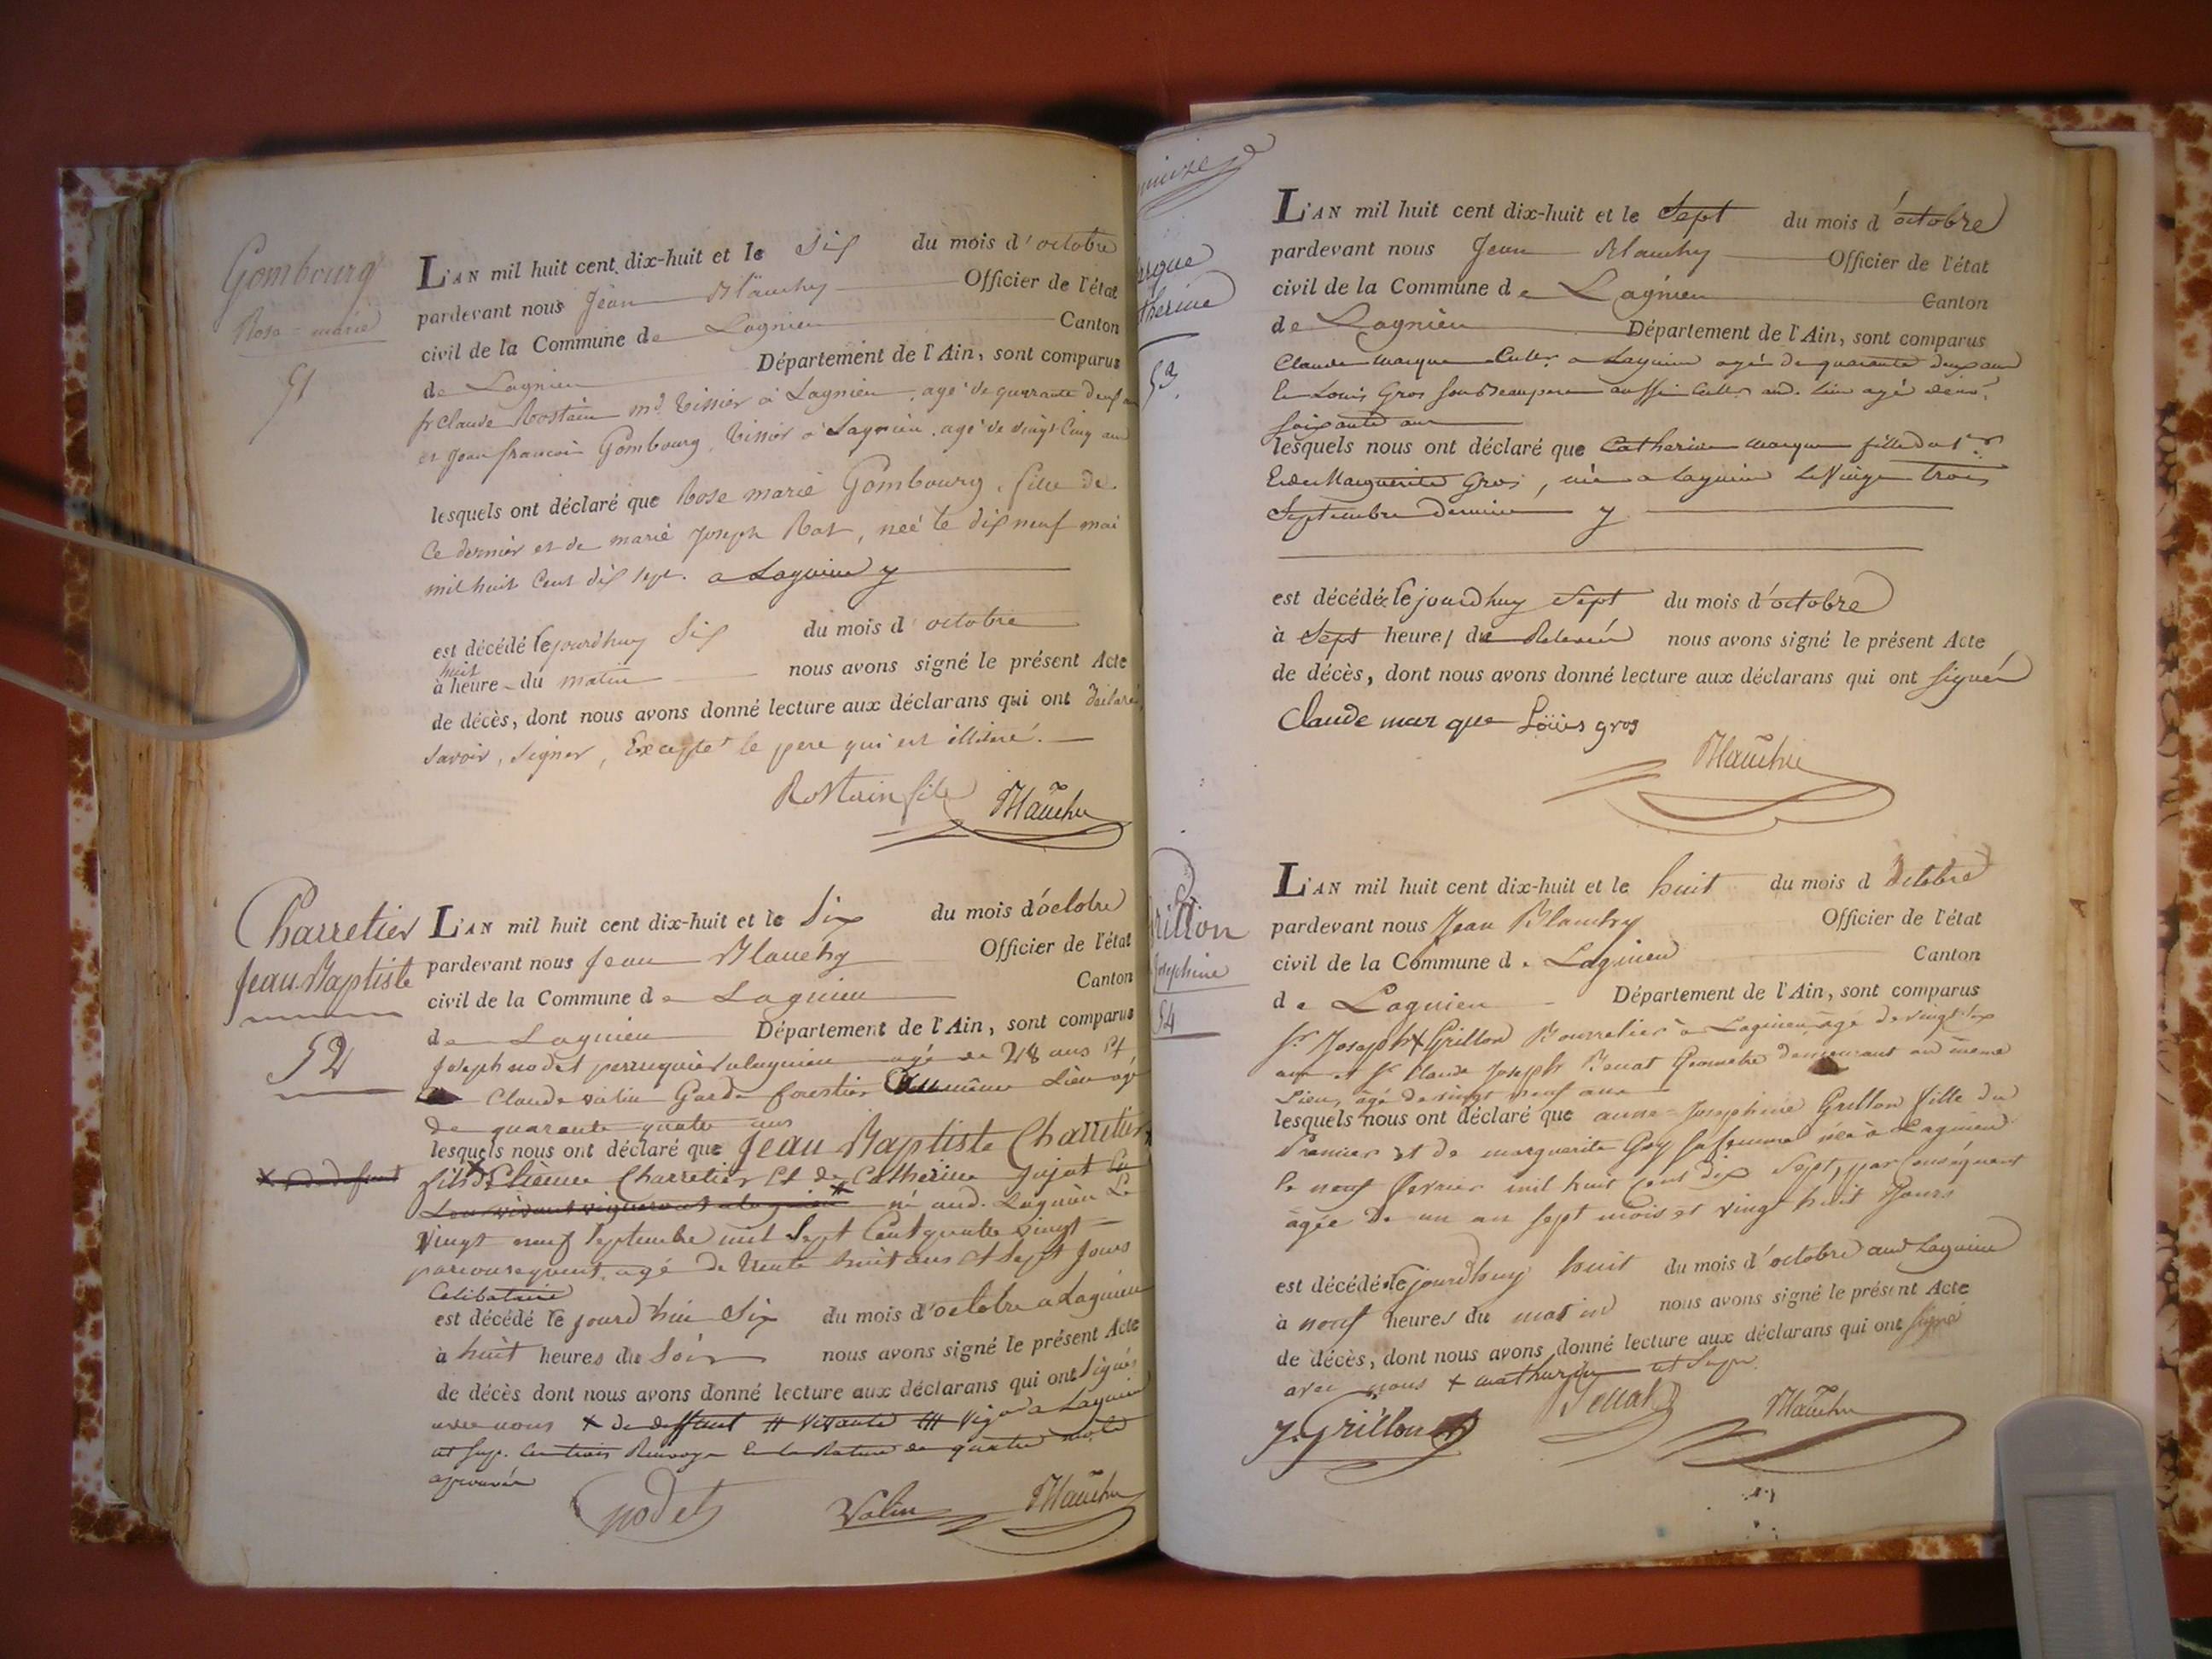 Gombourg
Rose = marie
51
L'AN mil huit cent dix-huit et le Six du mois d'octobre
pardevant nous Jean Blanchy Officier de l'état
civil de la Commune de Lagnieu Canton
de Lagnieu Département de l'Ain, sont comparus
fr Claude Rostain md. tissier à Lagnieu, agé de quarante deux ans
et jean francois Gombourg, tissier à Lagnieu, agé de vingt Cinq ans
lesquels ont déclaré que Rose marie Gombourg, fille de
Ce dernier et de marie Joseph Rat, née le dix neuf mai
mil huit Cent dix sept. a Lagnieu
est décédé le jourdhuy Six du mois d'octobre
huit
à heure du matin nous avons signé le présent Acte
de décès, dont nous avons donné lecture aux déclarans qui ont déclaré
savoir, signer, Excepté le pere qui est illitéré.
Rostain fils Blanchy
Charretier
Jean Baptiste
52
L'AN mil huit cent dix-huit et le Six du mois d'octobre
pardevant nous Jean Blanchy Officier de l'état
civil de la Commune de Lagnieu Canton
de Lagnieu Département de l'Ain, sont comparus
Joseph nodet perruquier a lagnieu agé de 28 ans Et
Claude valin Garde forestier même Lieu agé
de quarante quatre ans
lesquels nous ont déclaré que Jean Baptiste Charretier
fils d'Etienne Charretier Et de Catherine Jujat
né aud. Lagnieu Le
vingt neuf septembre mil Sept Cent quatre vingt
parconsequent agé de trente huit ans Et Sept Jours
Celibataire
est décédé le jourd'hui Six du mois d'octobre a Lagnieu
à huit heures du Soir nous avons signé le présent Acte
de décès dont nous avons donné lecture aux déclarans qui ont signés
avec nous + de deffunt # vivante a Lagnieu
Renvoys Et la Rature de quatre mots
aprouvés
Nodet Valin Blanchy
53
L'AN mil huit cent dix-huit et le Sept du mois d'octobre
pardevant nous Jean Blanchy Officier de l'état
civil de la Commune de Lagnieu Canton
de Lagnieu Département de l'Ain, sont comparus
Claude marque Cultr. a Lagnieu agé de quarante deux ans
Et Louis Gros son Beaupere aussi Cultr. aud. Lieu agé de
soixante ans
lesquels nous ont déclaré que Catherine marque fille du 1er
Et de Marguerite Gros, née a Lagnieu Le vingt trois
Septembre dernier
est décédé le jourdhuy Sept du mois d'octobre
à Sept heures de Relevée nous avons signé le présent Acte
de décès, dont nous avons donné lecture aux déclarans qui ont signés
Claude marque Loüis gros
Blanchy
Grillon
Josephine
54
L'AN mil huit cent dix-huit et le huit du mois d'octobre
pardevant nous Jean Blanchy Officier de l'état
civil de la Commune de Lagnieu Canton
de Lagnieu Département de l'Ain, sont comparus
Sr. Joseph + Grillon Bourrelier à Lagnieu, âgé de vingt six
ans et Sr. Claude Joseph Benat Géometre demeurant au même
Lieu, âgé de vingt neuf ans
lesquels nous ont déclaré que anne = Josephine Grillon fille du
Premier et de marguerite Goy sa femme née à Lagnieu
le neuf Fevrier mil huit cent dix Sept, par Conséquent
âgée de un an sept mois et vingt huit Jours
est décédé le jourdhuy huit du mois d'octobre aud Lagnieu
à neuf heures du matin nous avons signé le présent Acte
de décès, dont nous avons donné lecture aux déclarans qui ont signé
avec nous +
J. Grillon Benat Blanchy